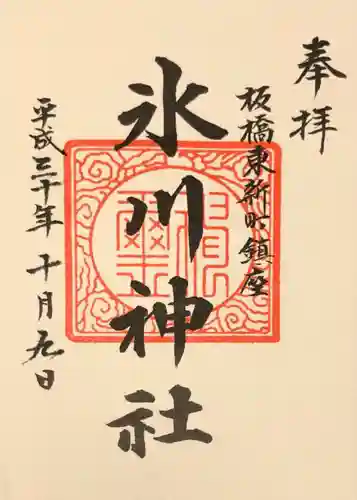 奉拝
板橋東新町鎮座
氷川神社
平成三十年 十月九日